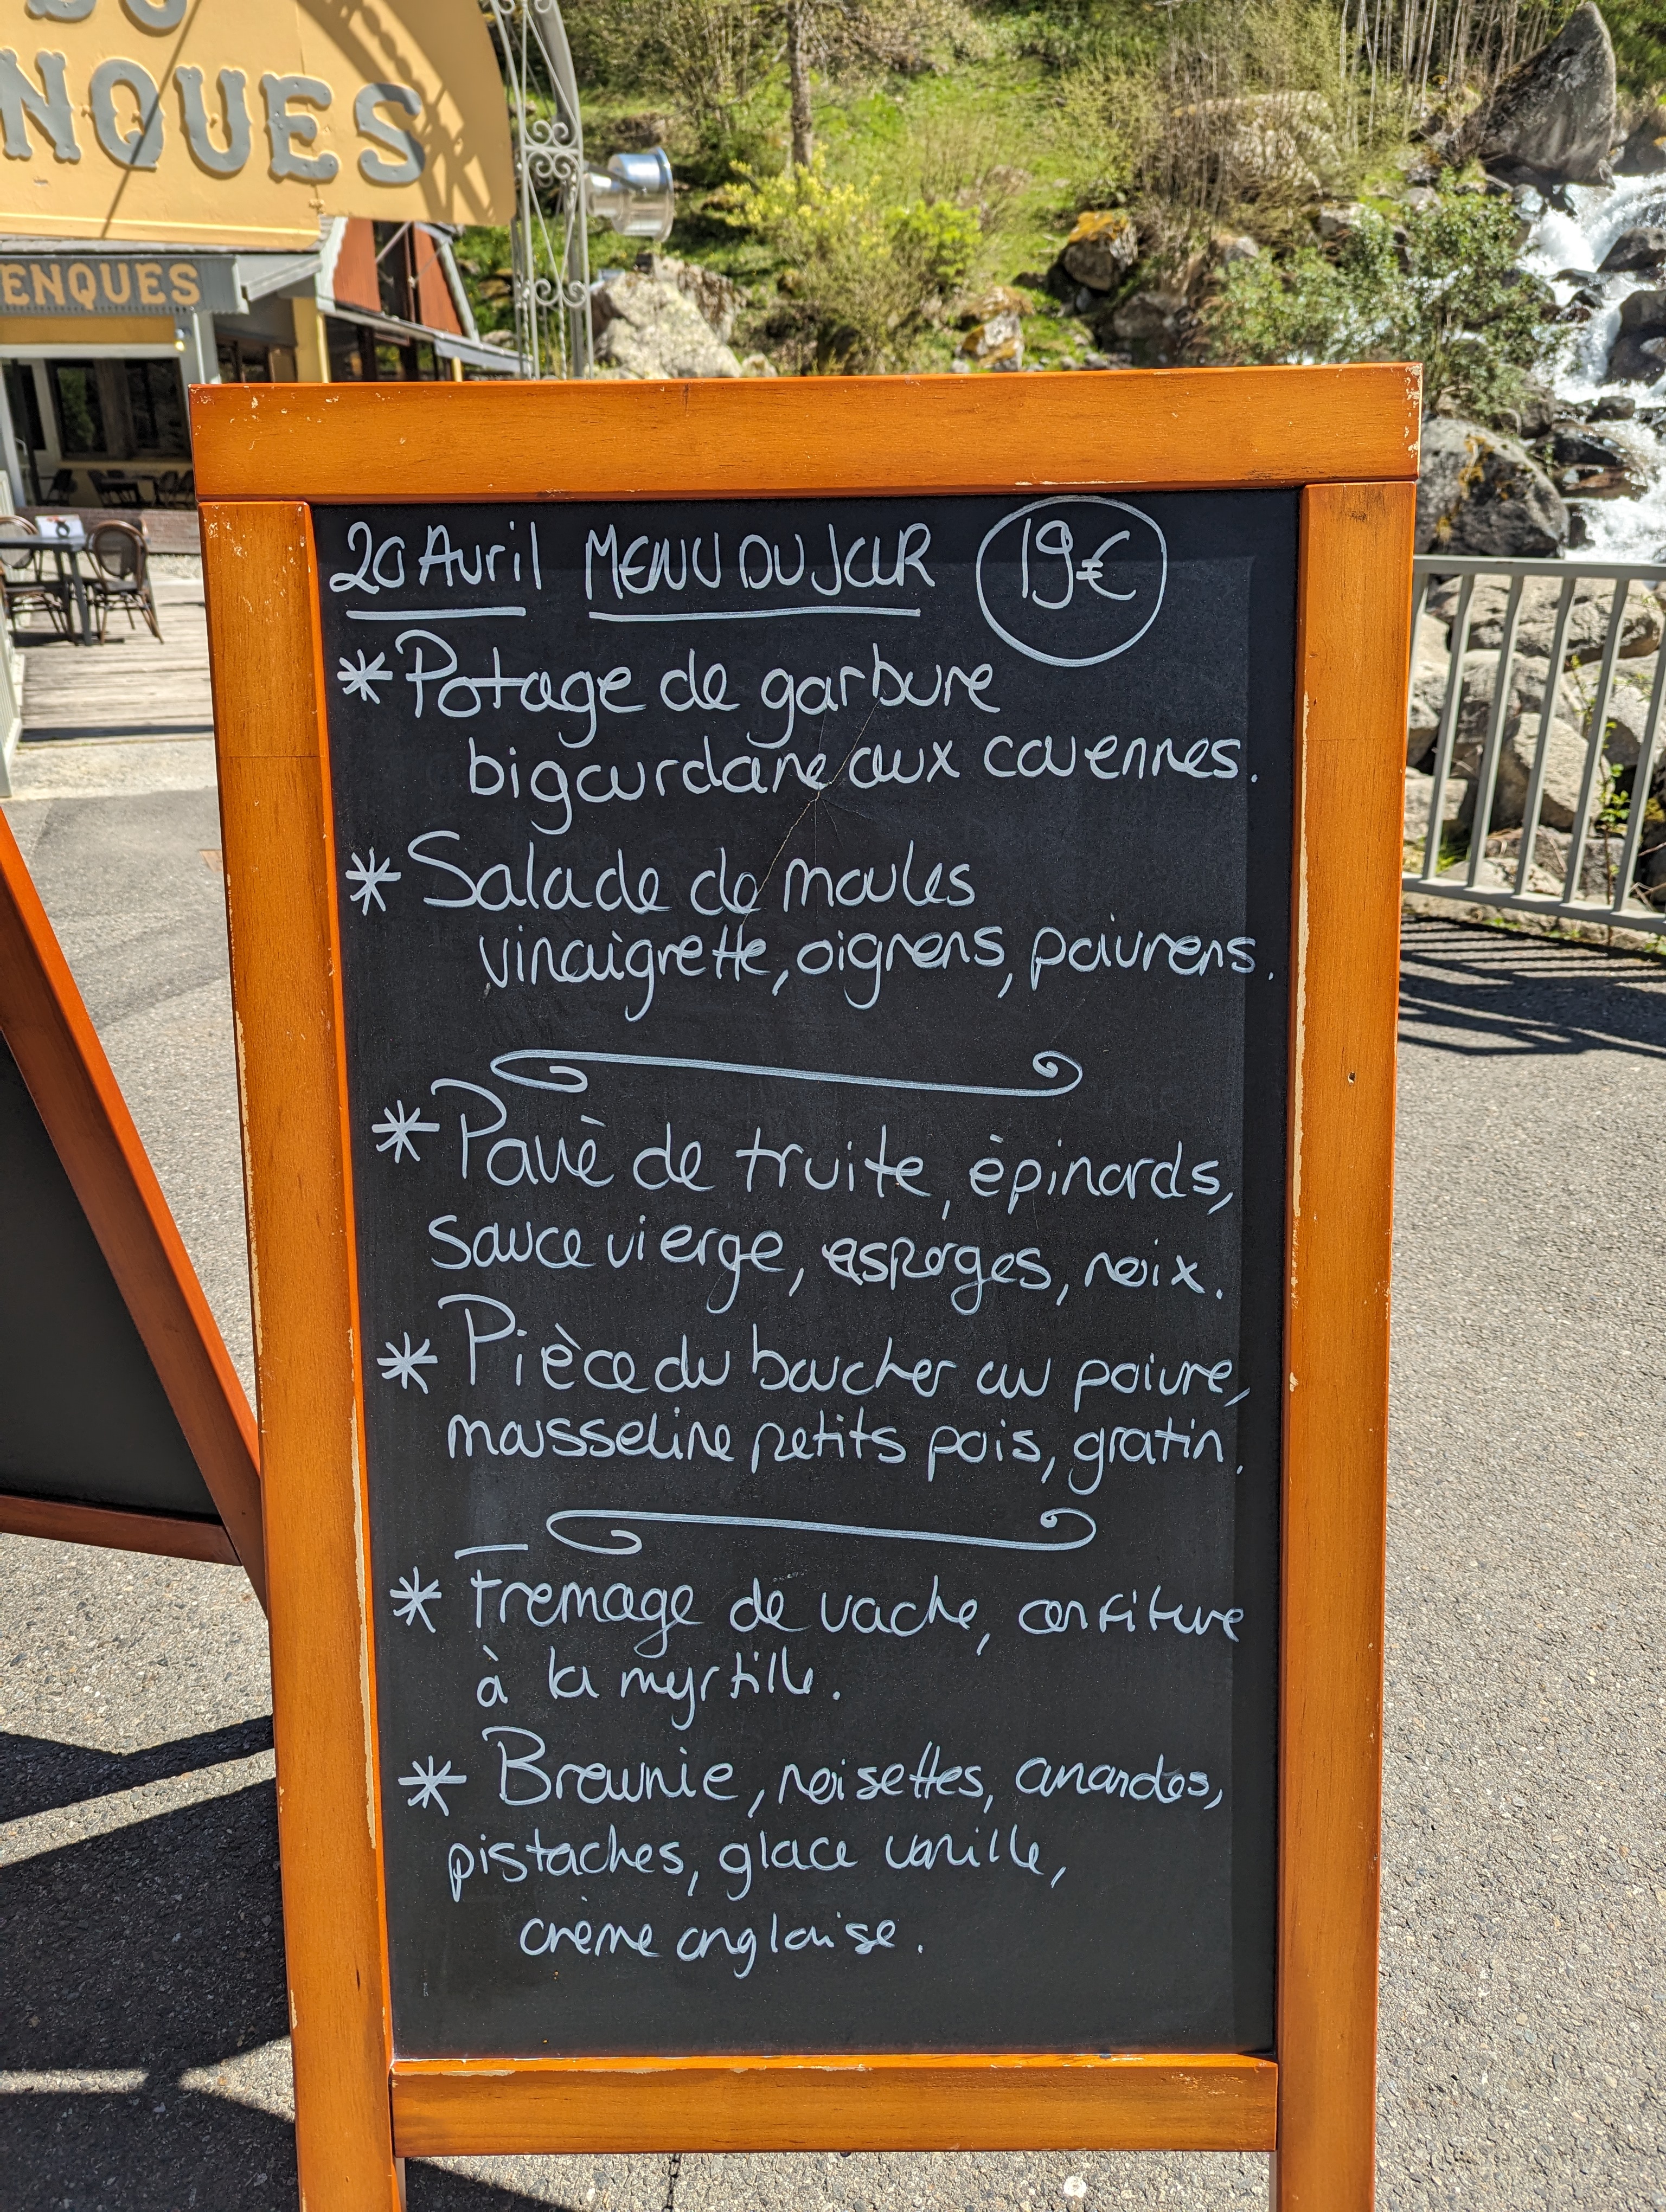 NQUES
ENQUES
20 Avril MENU DU JOUR 19€
* Potage de garbure
bigourdane aux couennes.
* Salade de moules
vinaigrette, oignons, poivrons.
* Pavè de truite, èpinards,
sauce vierge, asperges, noix.
* Pièce du boucher au poivre,
mousseline petits pois, gratin.
* Fromage de vache, confiture
à la myrtille.
* Brownie, noisettes, amandes,
pistaches, glace vanille,
crème anglaise.